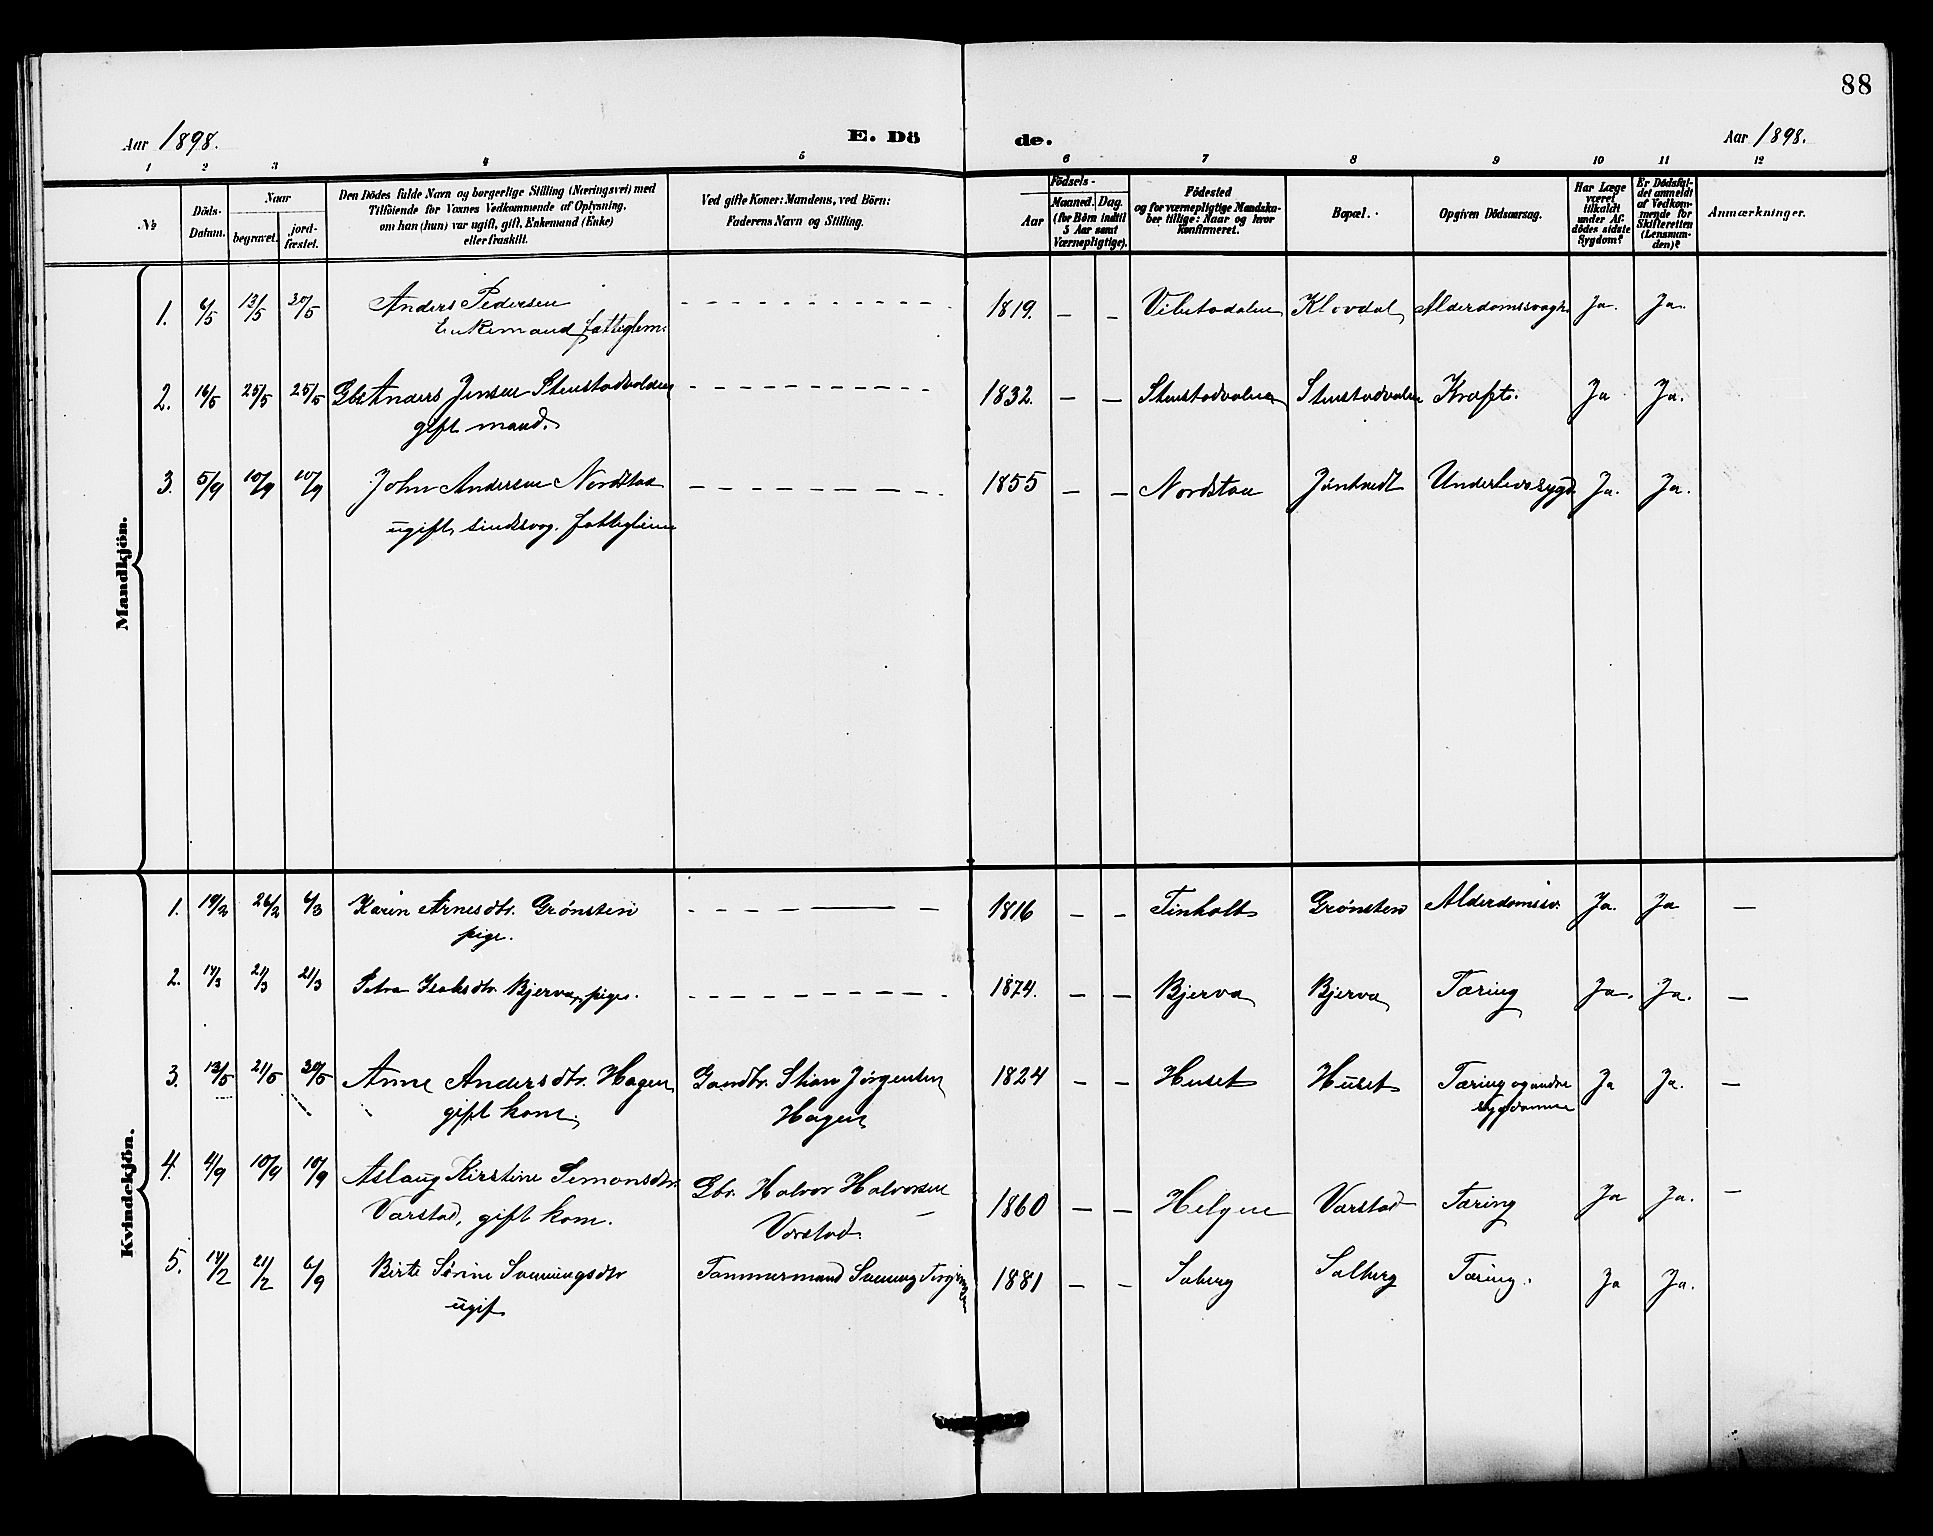 88
Aar 1898. E. Dö de. Aar 1898.
1 2 3 4 5 6 7 8 9 10 11 12
№
Döds-Datum.
Naar
begravet.
jordfæstet.
Den Dödes fulde Navn og borgerlige Stilling (Næringsvei) med
Tilföiende for Voxnes Vedkommende af Oplysning,
om han (hun) var ugift, gift, Enkemand (Enke)
eller fraskilt.
Ved gifte Koner: Mandens, ved Börn:
Faderens Navn og Stilling.
Födsels-
Aar
Maaned. Dag.
(for Börn indtil
5 Aar samt
Værnepligtige).
Födested
og for værnepligtige Mandskaber tillige: Naar og hvor
Konfirmeret.
Bopæl.
Opgiven Dödsaarsag.
Har Læge
været
tilkaldt
under Afdödes sidste
Sygdom?
Er Dödsfaldet anmeldt
af Vedkommende for
Skifteretten
(Lensmanden)?
Anmærkninger.
Mandkjön.
1. 6/5 13/5 30/5 Anders Pedersen 1819. — — Klovdal Alderdomssvagh. Ja. Ja.
Enkemand, fattiglem.
2. 16/5 25/5 25/5 Gbr Anders Jensen Stenstadvolden 1832. — — Stenstadvolden Stenstadvolden Kræft. Ja Ja.
gift mand.
3. 5/9 10/9 10/9 John Andersen Nordstaa 1855 — — Nordstaa Jøntvedt Underlivssygd. Ja. Ja.
ugift, sindssvag. fattiglem
Kvindekjön.
1. 19/2 26/2 6/3 Karen Arnesdtr. Grønsten 1816 — — Tinholt Grønsten Alderdomssv. Ja. Ja —
pige.
2. 14/3 21/3 21/3 Petra Isaksdtr. Bjerva, pige. 1874. — — Bjerva Bjerva Tæring Ja. Ja. —
3. 13/5 21/5 30/5 Anne Andersdtr. Hagen Gaardbr. Stian Jørgensen 1824 — — Huset Huset Tæring og andre Ja Ja. —
gift kone. Hagen sygdomme
4. 4/9 10/9 10/9 Aslaug Kirstine Simonsdtr. Gbr. Halvor Halvorsen 1860 — — Helgen Varstad Tæring Ja Ja. —
Varstad, gift kone. Varstad.
5. 14/2 21/2 6/9 Birte Sørine Sauningsdtr Tømmermand 1881 — — Solberg Tæring. Ja Ja.
ugift